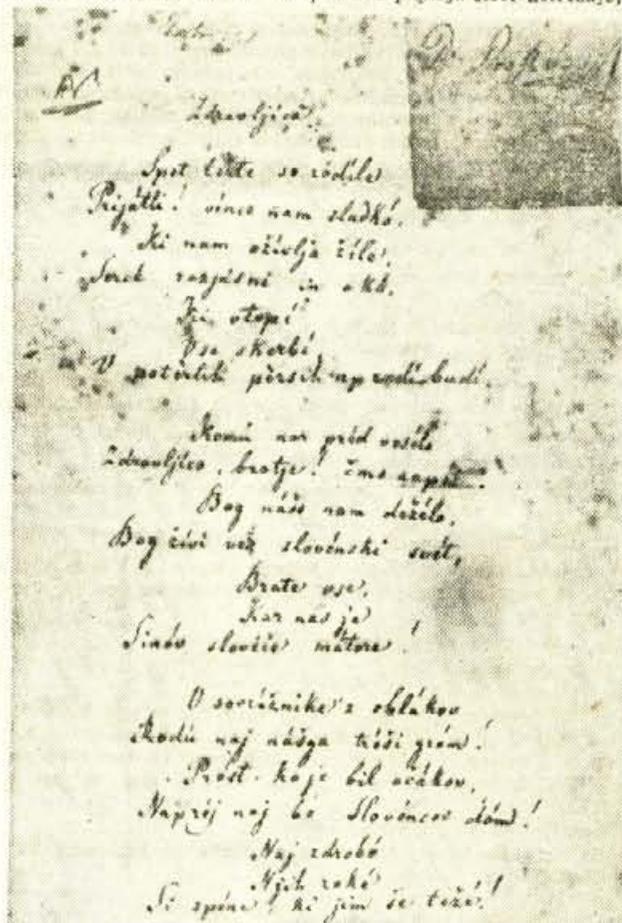 Zdravljica
Spet tèrte so rodíle
Prijátli! vince nam sladkó,
Ki nam oživlja žíle,
Serce razjásni in okó,
Ki utopí
Vse skerbí
V potèrtih pèrsih up budí.
Komú nar préd veséló
Zdravljico, bratje! čmo zapét!
Bog našo nam deželo,
Bog živi ves slovénski svét,
Brate vse,
Kar nas je
Sinóv slovéče mátere!
V sovrážnike 'z oblákov
Rodú naj nášga tréši gróm!
Prost, ko je bil očákov,
Naprèj naj bo Slovéncov dóm!
Naj zdrobé
Njih roké
Si spone, ki jim še težé!